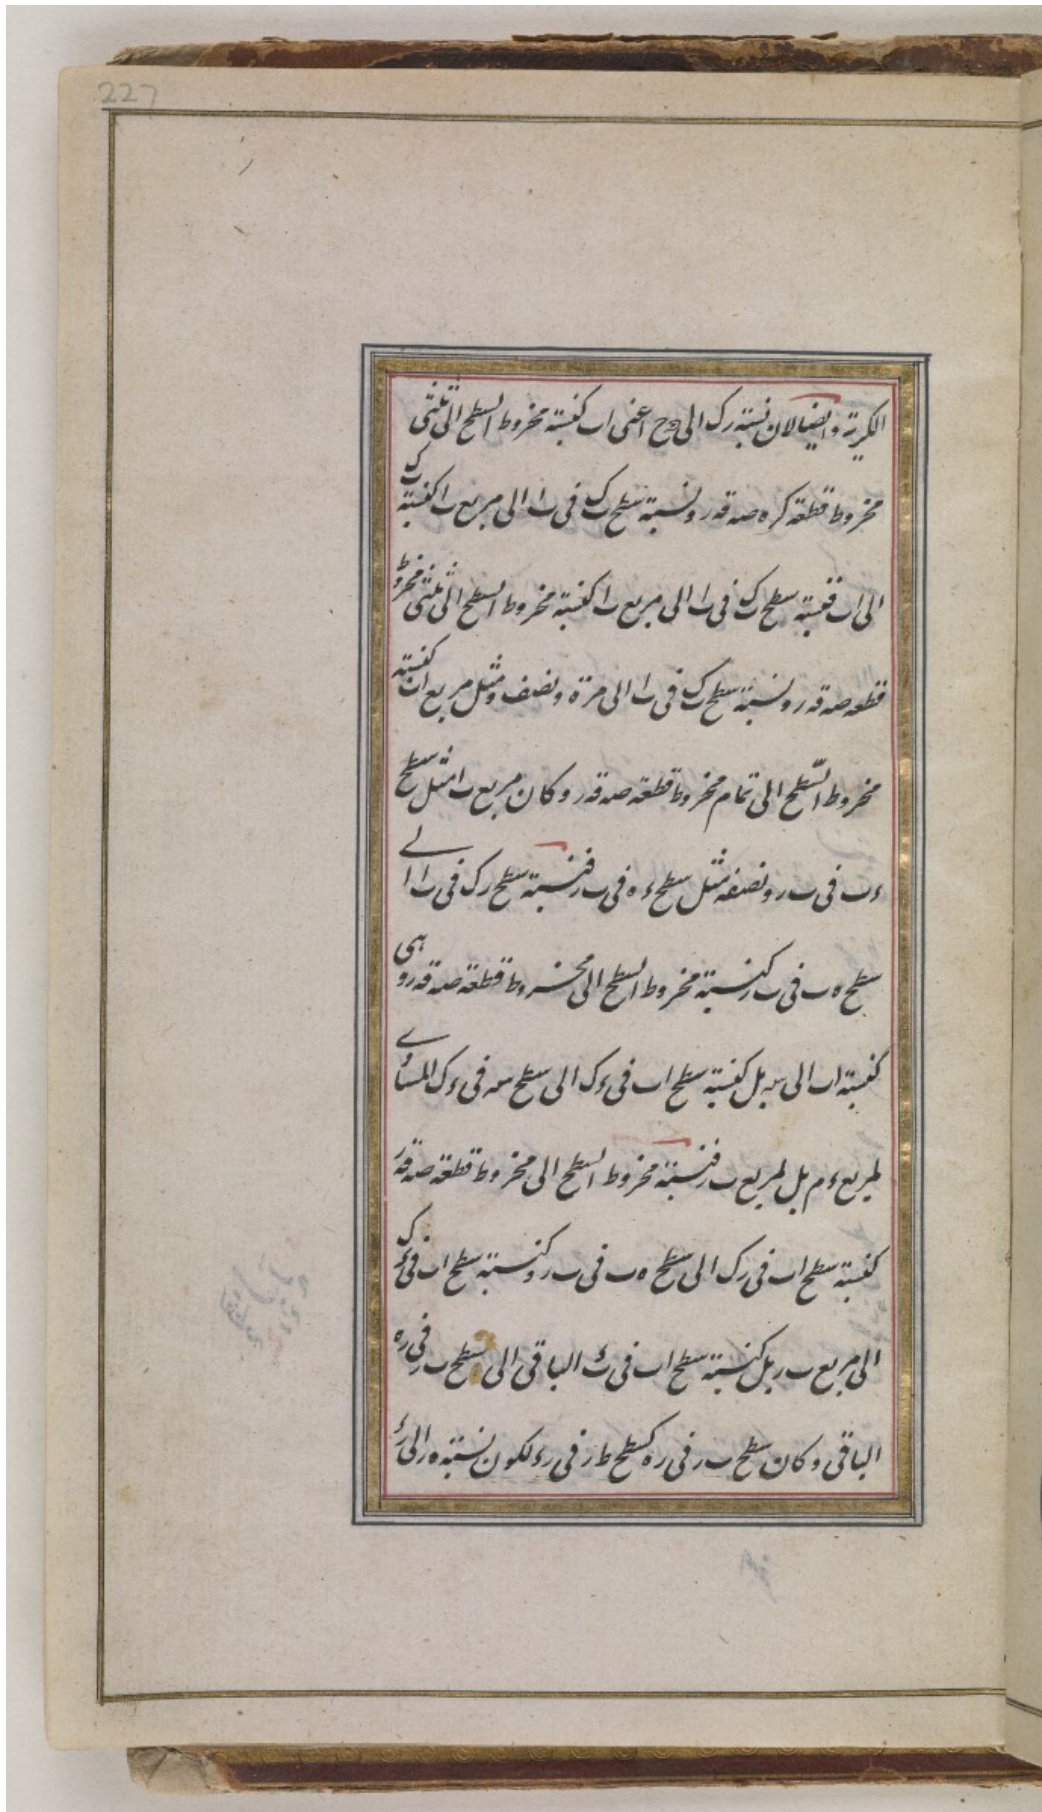 227
الكرية وايضا لان نسبة رك الى ح ح اعنى اب كنسبة مخروط السطح الى ثلثى
مخروط قطعة كره صه قه ر ونسبة سطح ں ک فى ں ا الى مربع ں ا كنسبة ں ک
الى اں فنسبة سطح ں ک فى ں ا الى مربع ں ا كنسبة مخروط السطح الى ثلثى مخروط
قطعه صه قه ر ونسبة سطح ں ک فى ں ا الى مرة ونصف ومثل مربع اں كنسبة
مخروط السّطح الى تمام مخروط قطعة صه قه ر وكان مربع ں ا مثل سطح
ء ں فى ں ر ونصفه مثل سطح ء ه فى ں ر فنسبة سطح رك فى ں ا الى
سطح ه ں فى ں ر كنسبة مخروط السطح الى مخروط قطعة صه قه ر وهى
كنسبة اں الى سه بل كنسبة سطح اں فى ء ک الى سطح سه فى ء ک المساوى
لمربع ء م بل لمربع ں ر فنسبة مخروط السطح الى مخروط قطعة صه قه ر
كنسبة سطح اں فى رک الى سطح ه ں فى ں ر وكنسبة سطح اں فى ء ک
الى مربع ں ر بل كنسبة سطح اں فى رء الباقى الى سطح ں ر فى ر ه
الباقى وكان سطح ں ر فى ر ه كسطح ط ر فى ر ء لكون نسبة ه ر الى ر ء